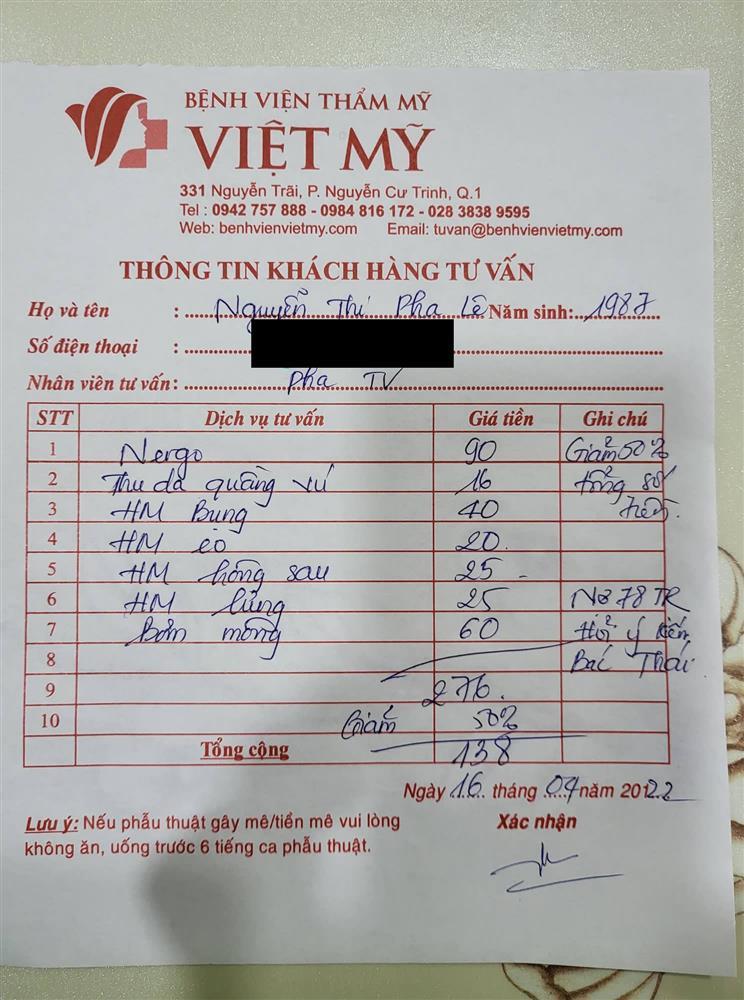 BỆNH VIỆN THẨM MỸ
VIỆT MỸ
331 Nguyễn Trãi, P. Nguyễn Cư Trinh, Q.1
Tel : 0942 757 888 - 0984 816 172 - 028 3838 9595
Web: benhvienvietmy.com Email: tuvan@benhvienvietmy.com
THÔNG TIN KHÁCH HÀNG TƯ VẤN
Họ và tên : Nguyễn Thị Pha Lê Năm sinh: 1987
Số điện thoại :
Nhân viên tư vấn: Pha TV
STT Dịch vụ tư vấn Giá tiền Ghi chú
1 Nergo 90 Giảm 50%
2 Thu da quầng vú 16 tổng số
3 HM Bụng 40 tiền.
4 HM eo 20.
5 HM hông sau 25 -
6 HM lưng 25 Nợ 78 TR
7 Bơm mông 60 Hỏi ý kiến
8 Bác Thái
9 276.
10 Giảm 50%
Tổng cộng 138
Ngày 16 tháng 04 năm 2022
Lưu ý: Nếu phẫu thuật gây mê/tiền mê vui lòng
không ăn, uống trước 6 tiếng ca phẫu thuật.
Xác nhận